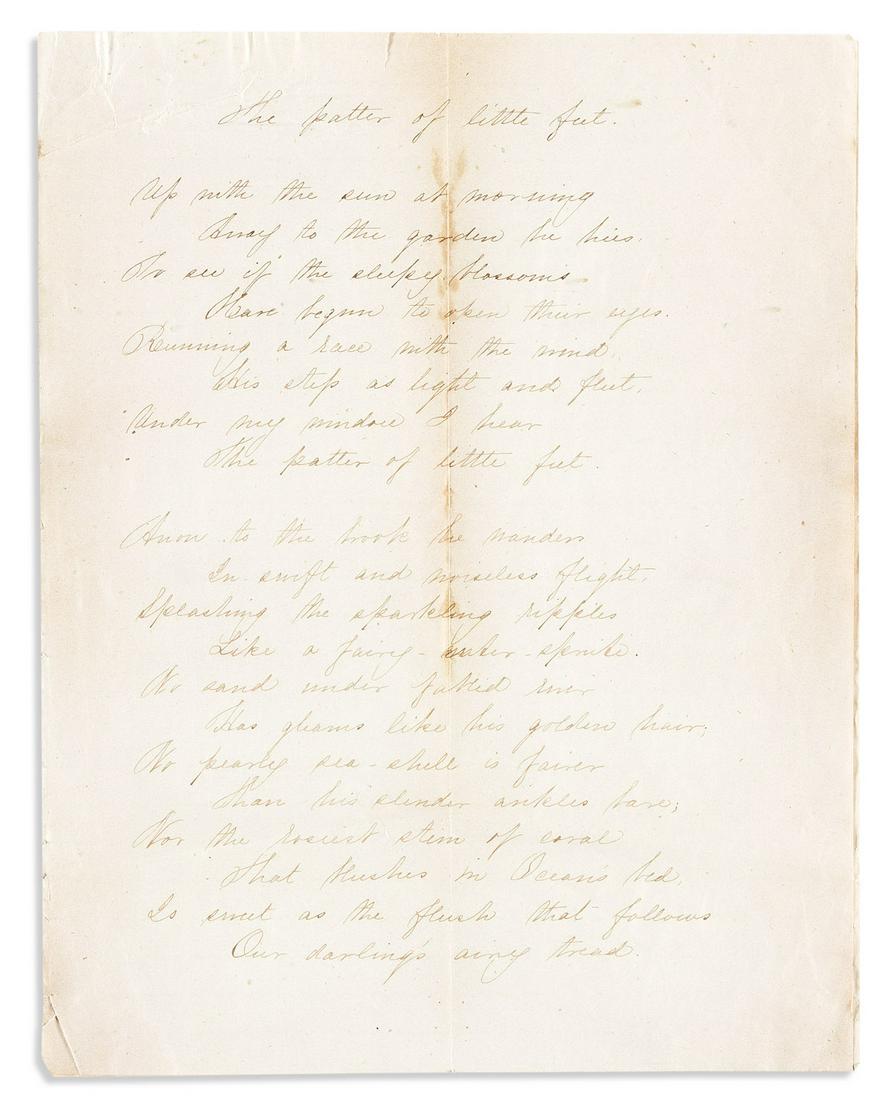 The patter of little feet.
Up with the sun at morning
Away to the garden he hies.
To see if the sleepy blossoms
Have begun to open their eyes.
Running a race with the wind,
His step as light and fleet,
Under my window I hear
The patter of little feet.
Anon to the brook he wanders
In swift and noiseless flight,
Splashing the sparkling ripples
Like a fairy-water-sprite.
No sand under fabled river
Has gleams like his golden hair;
No pearly sea-shell is fairer
Than his slender ankles bare;
Nor the rosiest stem of coral
That blushes in Ocean's bed,
Is sweet as the flush that follows
Our darling's airy tread.